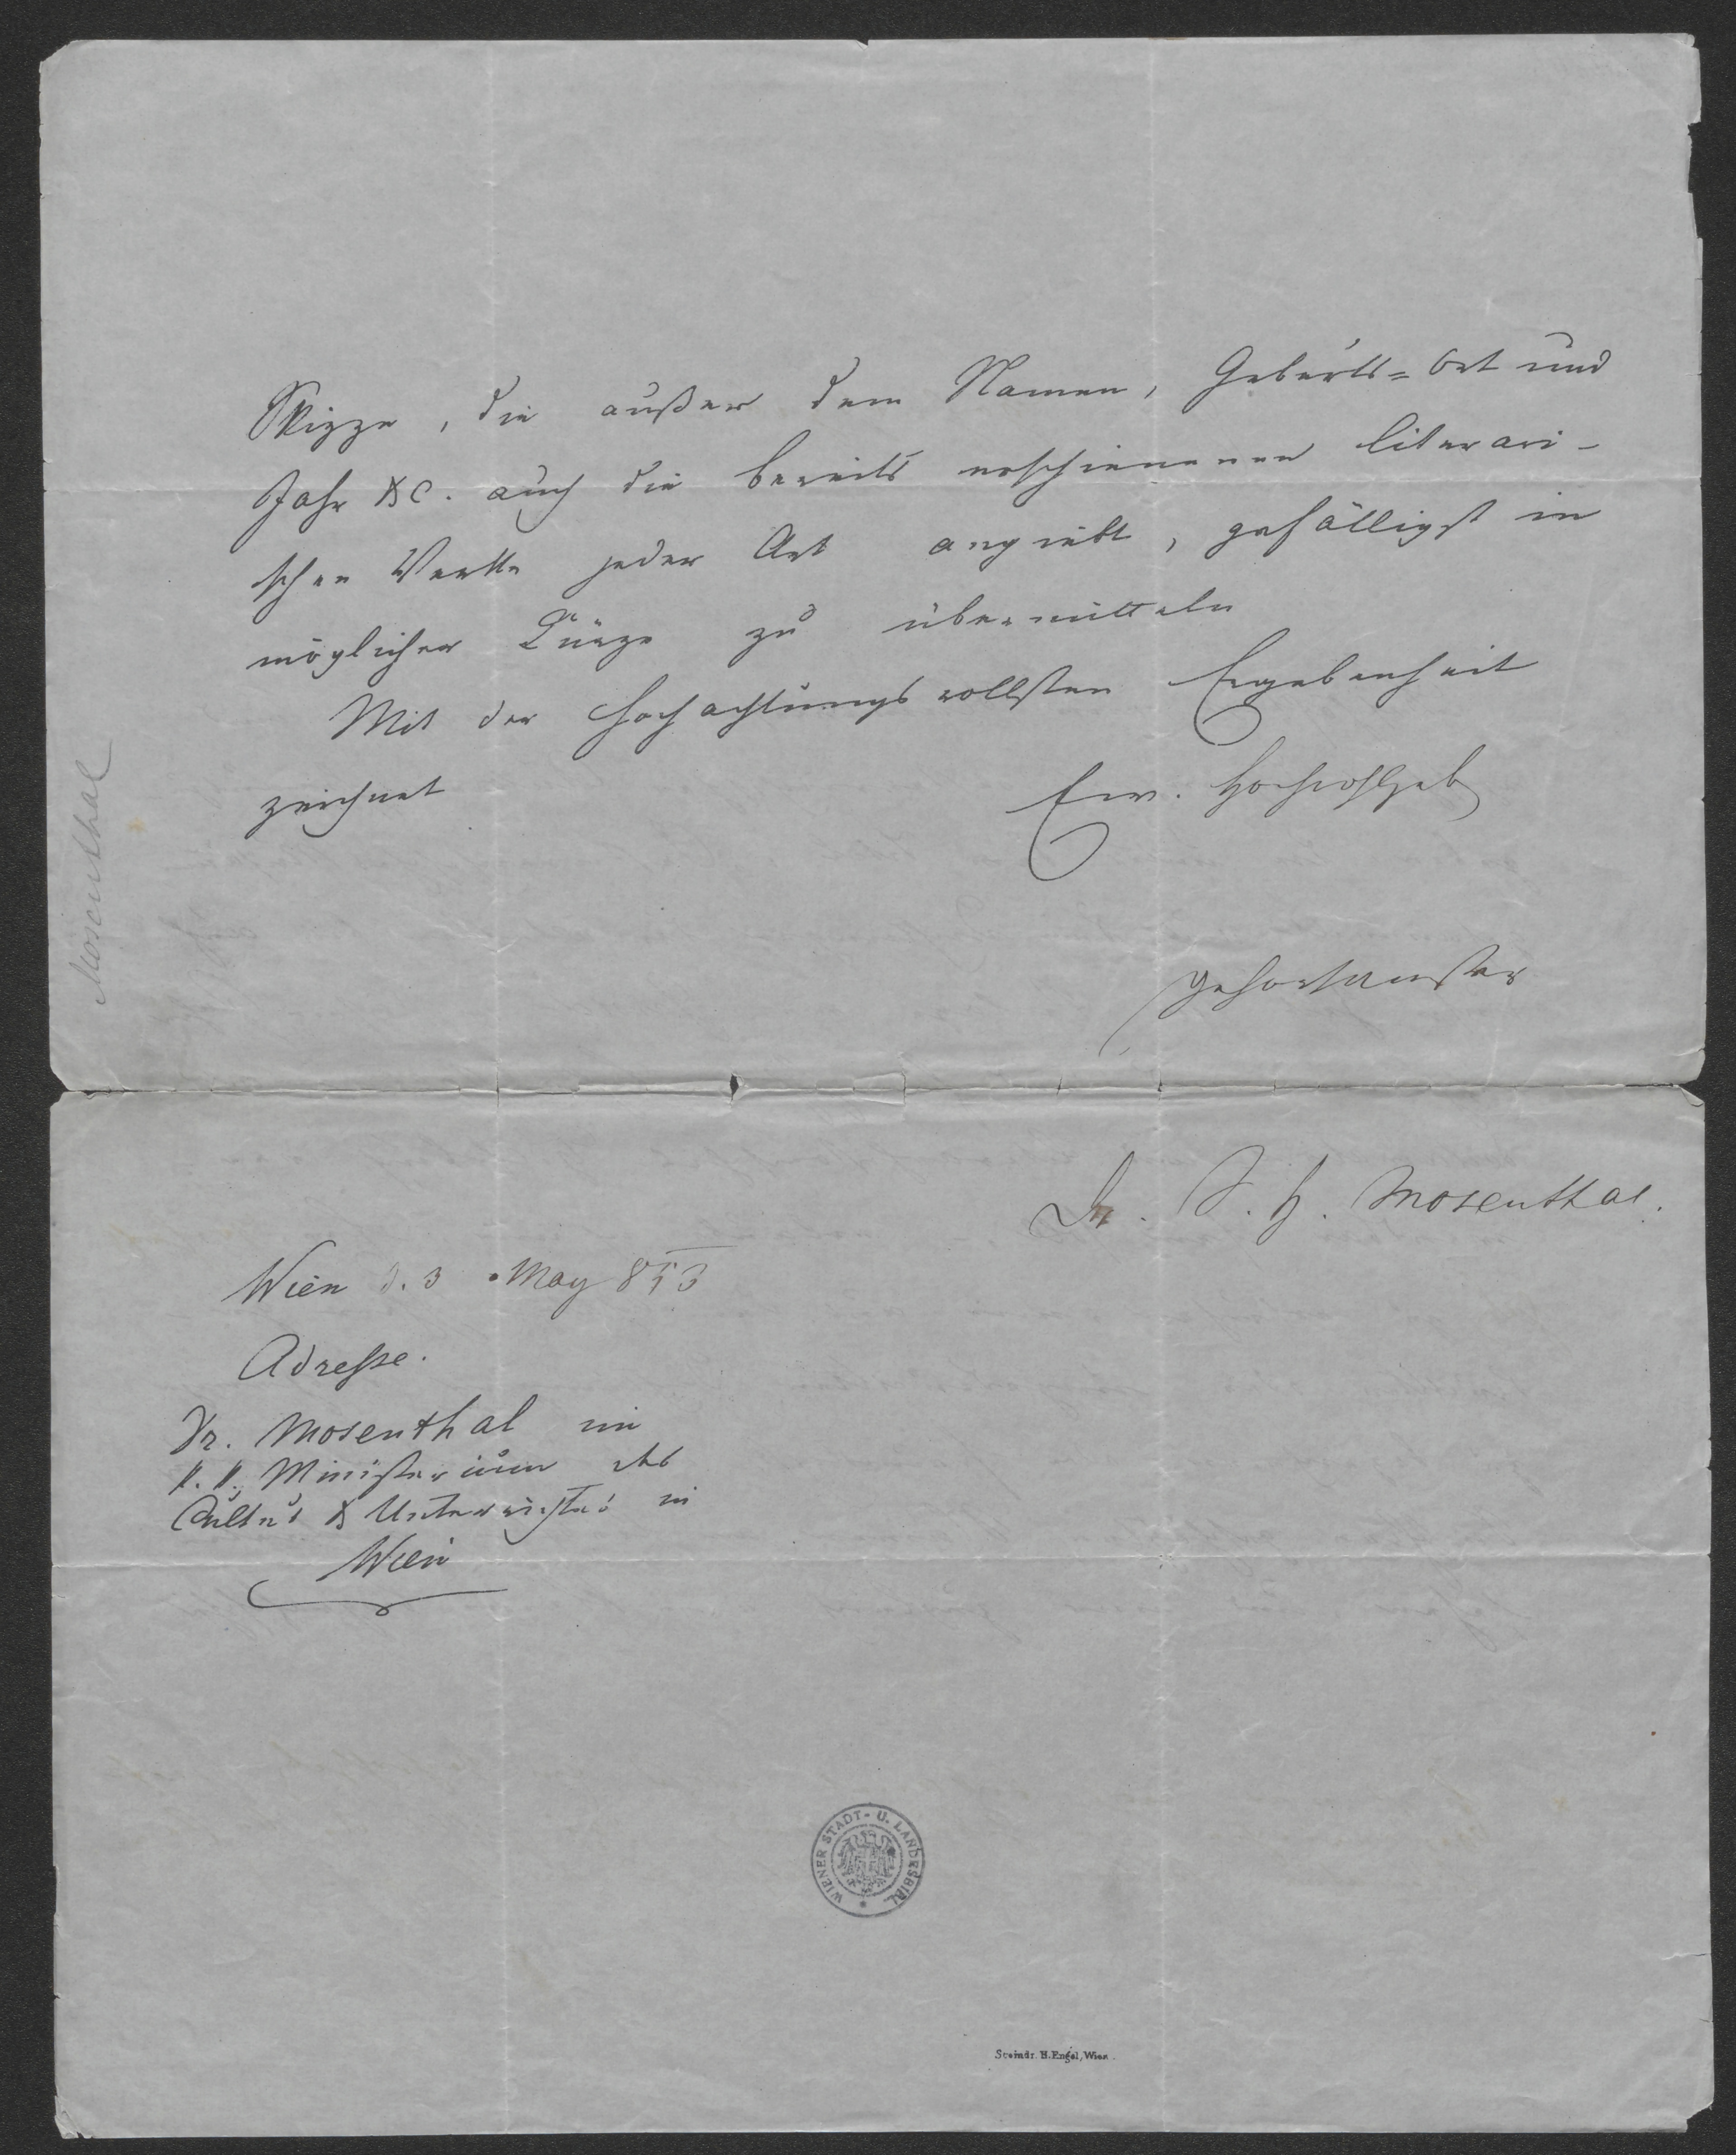 Skizze, die außer dem Namen, Geburts=Ort und
Jahr &c. auch die bereits erschienenen literari-
schen Werke jeder Art angiebt, gefälligst in
möglicher Kürze zu übermitteln
Mit der hochachtungsvollsten Ergebenheit
zeichnet
Ew. Hochwohlgeb
gehorsamster
Dr. S. H. Mosenthal.
Wien d. 3. May 853
Adresse.
Dr. Mosenthal im
k. k. Ministerium des
Cultus & Unterrichtes in
Wien
Mosenthal
WIENER STADT- U. LANDESBIBL.
Steindr. H. Engel, Wien.